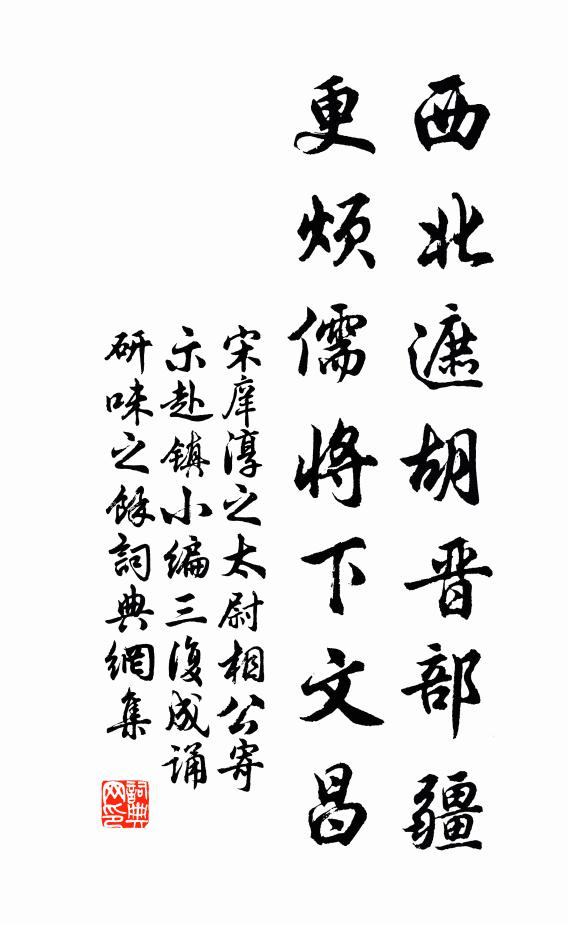 西北遮胡晋部疆
更煩儒将下文昌
宋庠淳之太尉相公寄
示赴鎮小编三復成诵
研味之餘詞典網集
詞典网印